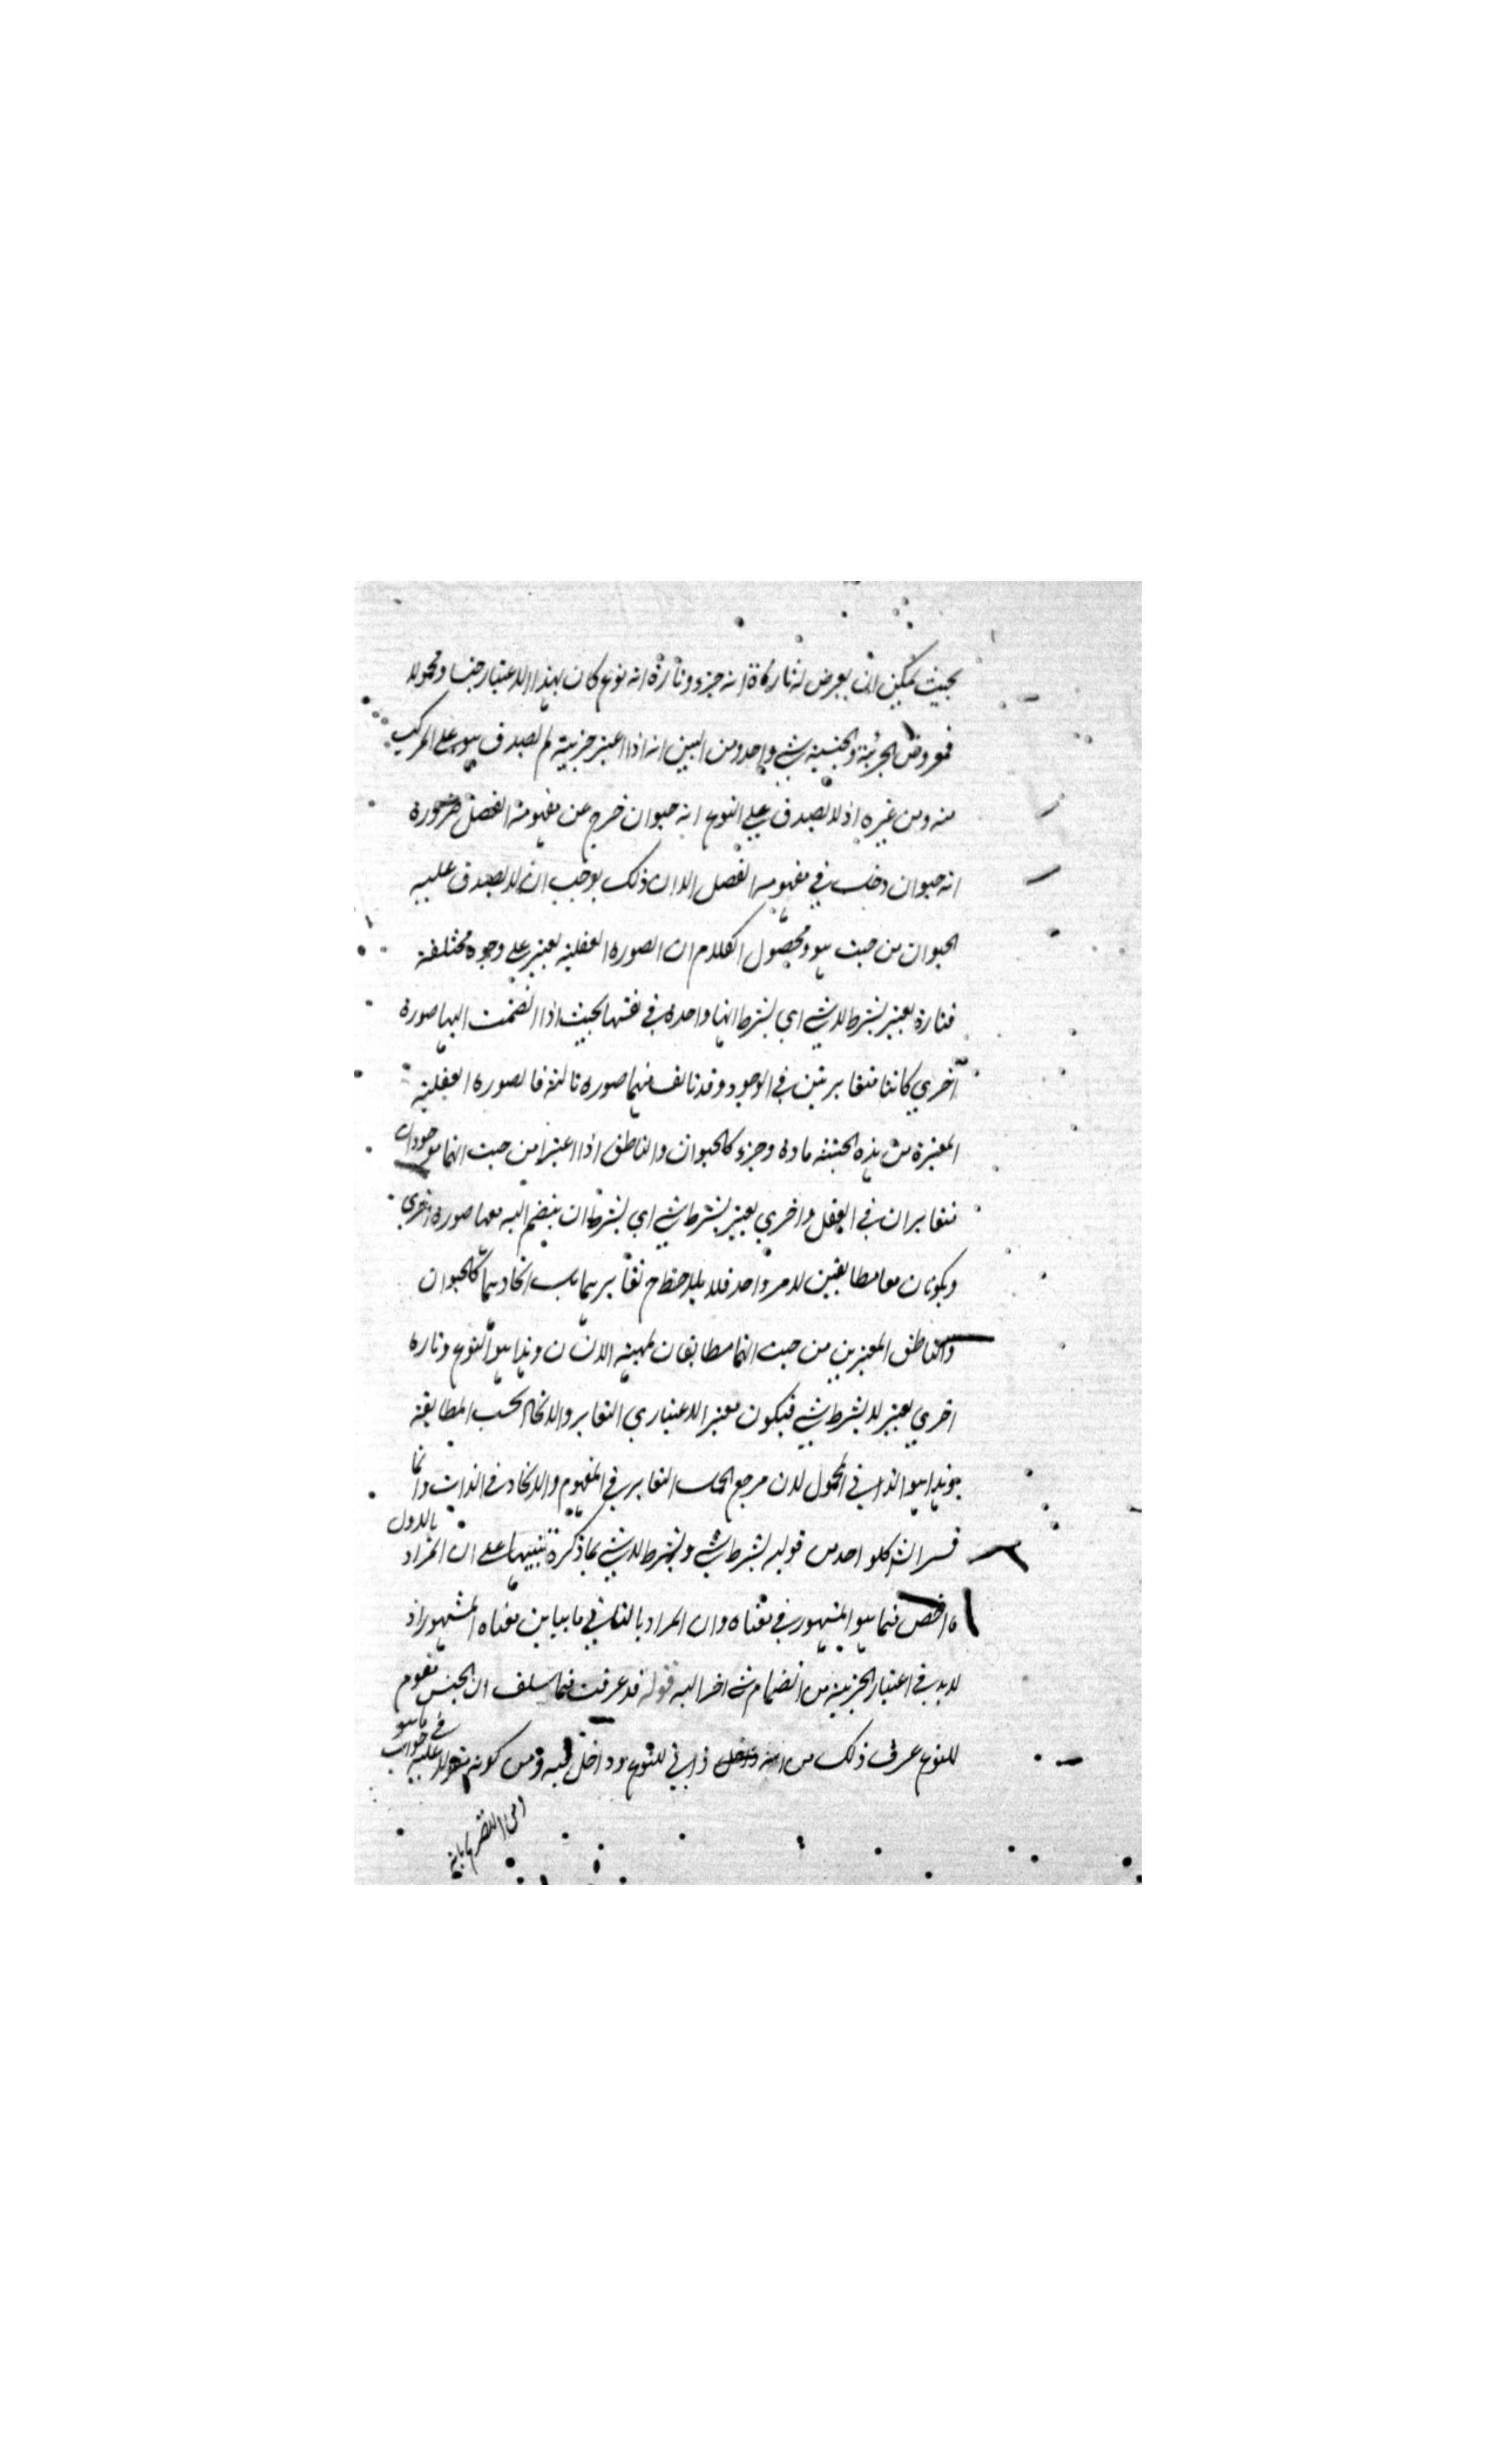 بحيث يمكن ان يعرض له تارة انه جزء وتارة انه نوع كان بهذا الاعتبار جنسا ومحمولا
فمعروض الجزئية والجنسية شي واحد ومن البين انه اذا اعتبر جزئيته لم يصدق هو على المركب
منه ومن غيره اذ لا يصدق على النوع انه حيوان خرج عن مفهومه الفصل ضرورة
انه حيوان دخل في مفهومه الفصل الا ان ذلك يوجب ان لا يصدق عليه
الحيوان من حيث هو ومحصول الكلام ان الصورة العقلية تعتبر على وجوه مختلفة
فتارة تعتبر بشرط لا شي اي بشرط انها واحدة في نفسها بحيث اذا انضمت اليها صورة
اخري كانتا متغايرتين في الوجود وقد تالف منهما صورة ثالثة فالصورة العقلية
المعتبرة من هذه الحيثية مادة وجزء كالحيوان والناطق اذا اعتبرا من حيث انهما موجودان
متغايران في العقل واخري تعتبر بشرط شي اي بشرط ان ينضم اليه معها صورة اخري
ويكونان معا مطابقين لامر واحد فلا يلاحظ ح تغايرهما بل اتحادهما كالحيوان
والناطق المعتبرين من حيث انهما مطابقان لمهية الانسان وهذا هو النوع وتارة
اخري تعتبر لا بشرط شي فيكون معتبر الاعتباري التغاير والاتحاد بحسب المطابقة
وهذا هو الذاتي المحمول لان مرجع الحمل التغاير في المفهوم والاتحاد في الذات وانما
فسر الش كلا واحد من قوليه بشرط شي وبشرط لا شي بما ذكره تنبيها على ان المراد بالاول
اخص مما هو المشهور في معناه وان المراد بالثاني ما يباين معناه المشهور اذ
لا بد في اعتبار الجزئية من انضمام شي اخر اليه قوله قد عرفت فيما سلف ان الجنس مقوم
للنوع عرف ذلك من انه ذاتي للنوع وداخل فيه ومن كونه مقولا عليه في جواب ما هو